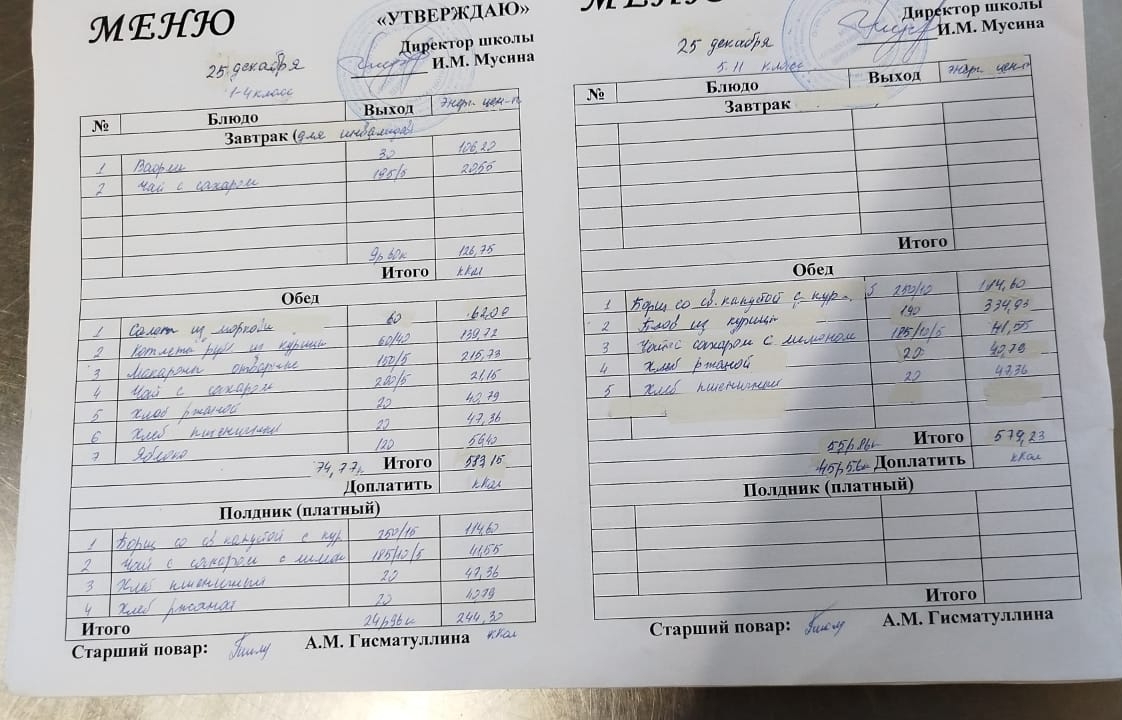 МЕНЮ
«УТВЕРЖДАЮ»
Директор школы
И.М. Мусина
25 декабря
1-4 класс
№ Блюдо Выход Энерг. цен-т
Завтрак (для инвалидов)
1 Вафли 30 106,20
2 Чай с сахаром 195/5 20,55
9р 60к 126,75
Итого ккал
Обед
1 Салат из моркови 60 62,00
2 Котлета руб. из курицы 60/40 139,72
3 Макароны отварные 150/5 215,73
4 Чай с сахаром 200/5 21,15
5 Хлеб ржаной 20 40,79
6 Хлеб пшеничный 20 47,36
7 Яблоко 120 56,40
74,77к Итого 583,15
Доплатить ккал
Полдник (платный)
1 Борщ со св. капустой с кур 250/15 114,60
2 Чай с сахаром с лимон 185/10/5 41,55
3 Хлеб пшеничный 20 47,36
4 Хлеб ржаной 20 40,79
Итого 24р96к 244,30
Старший повар: А.М. Гисматуллина ккал
МЕНЮ
Директор школы
И.М. Мусина
25 декабря
5-11 класс
№ Блюдо Выход Энерг. цен-т
Завтрак
Итого
Обед
1 Борщ со св. капустой с кур. 250/10 114,60
2 Плов из курицы 190 334,93
3 Чай с сахаром с лимоном 185/10/5 41,55
4 Хлеб ржаной 20 40,79
5 Хлеб пшеничный 20 47,36
55р86к Итого 579,23
45р56к Доплатить ккал
Полдник (платный)
Итого
Старший повар: А.М. Гисматуллина